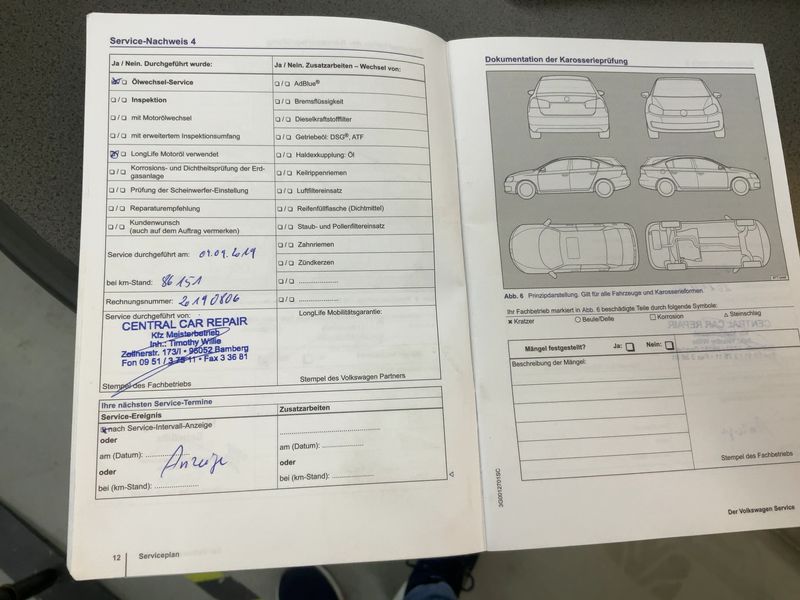 Service-Nachweis 4
Ja / Nein. Durchgeführt wurde:
☒/☐ Ölwechsel-Service
☐/☐ Inspektion
☐/☐ mit Motorölwechsel
☐/☐ mit erweitertem Inspektionsumfang
☒/☐ LongLife Motoröl verwendet
☐/☐ Korrosions- und Dichtheitsprüfung der Erd-
gasanlage
☐/☐ Prüfung der Scheinwerfer-Einstellung
☐/☐ Reparaturempfehlung
☐/☐ Kundenwunsch
(auch auf dem Auftrag vermerken)
Service durchgeführt am: 09.09.2019
bei km-Stand: 86151
Rechnungsnummer: 2190806
Service durchgeführt von:
CENTRAL CAR REPAIR
Kfz Meisterbetrieb
Inh.: Timothy Willie
Zeltnerstr. 173/I • 96052 Bamberg
Fon 09 51 / 3 75 11 • Fax 3 36 81
Stempel des Fachbetriebs
Ja / Nein. Zusatzarbeiten – Wechsel von:
☐/☐ AdBlue®
☐/☐ Bremsflüssigkeit
☐/☐ Dieselkraftstofffilter
☐/☐ Getriebeöl: DSG®, ATF
☐/☐ Haldexkupplung: Öl
☐/☐ Keilrippenriemen
☐/☐ Luftfiltereinsatz
☐/☐ Reifenfüllflasche (Dichtmittel)
☐/☐ Staub- und Pollenfiltereinsatz
☐/☐ Zahnriemen
☐/☐ Zündkerzen
☐/☐ ................
☐/☐ ................
LongLife Mobilitätsgarantie:
Stempel des Volkswagen Partners
Ihre nächsten Service-Termine
Service-Ereignis
☒ nach Service-Intervall-Anzeige
oder
am (Datum): ................
Anzeige
oder
bei (km-Stand): ................
Zusatzarbeiten
................
am (Datum): ................
oder
bei (km-Stand): ................
12 Serviceplan
Dokumentation der Karosserieprüfung
Abb. 6 Prinzipdarstellung. Gilt für alle Fahrzeuge und Karosserieformen.
Ihr Fachbetrieb markiert in Abb. 6 beschädigte Teile durch folgende Symbole:
✕ Kratzer ○ Beule/Delle □ Korrosion △ Steinschlag
Mängel festgestellt? Ja: ☐ Nein: ☐
Beschreibung der Mängel:
Stempel des Fachbetriebs
3G0012701SC
Der Volkswagen Service